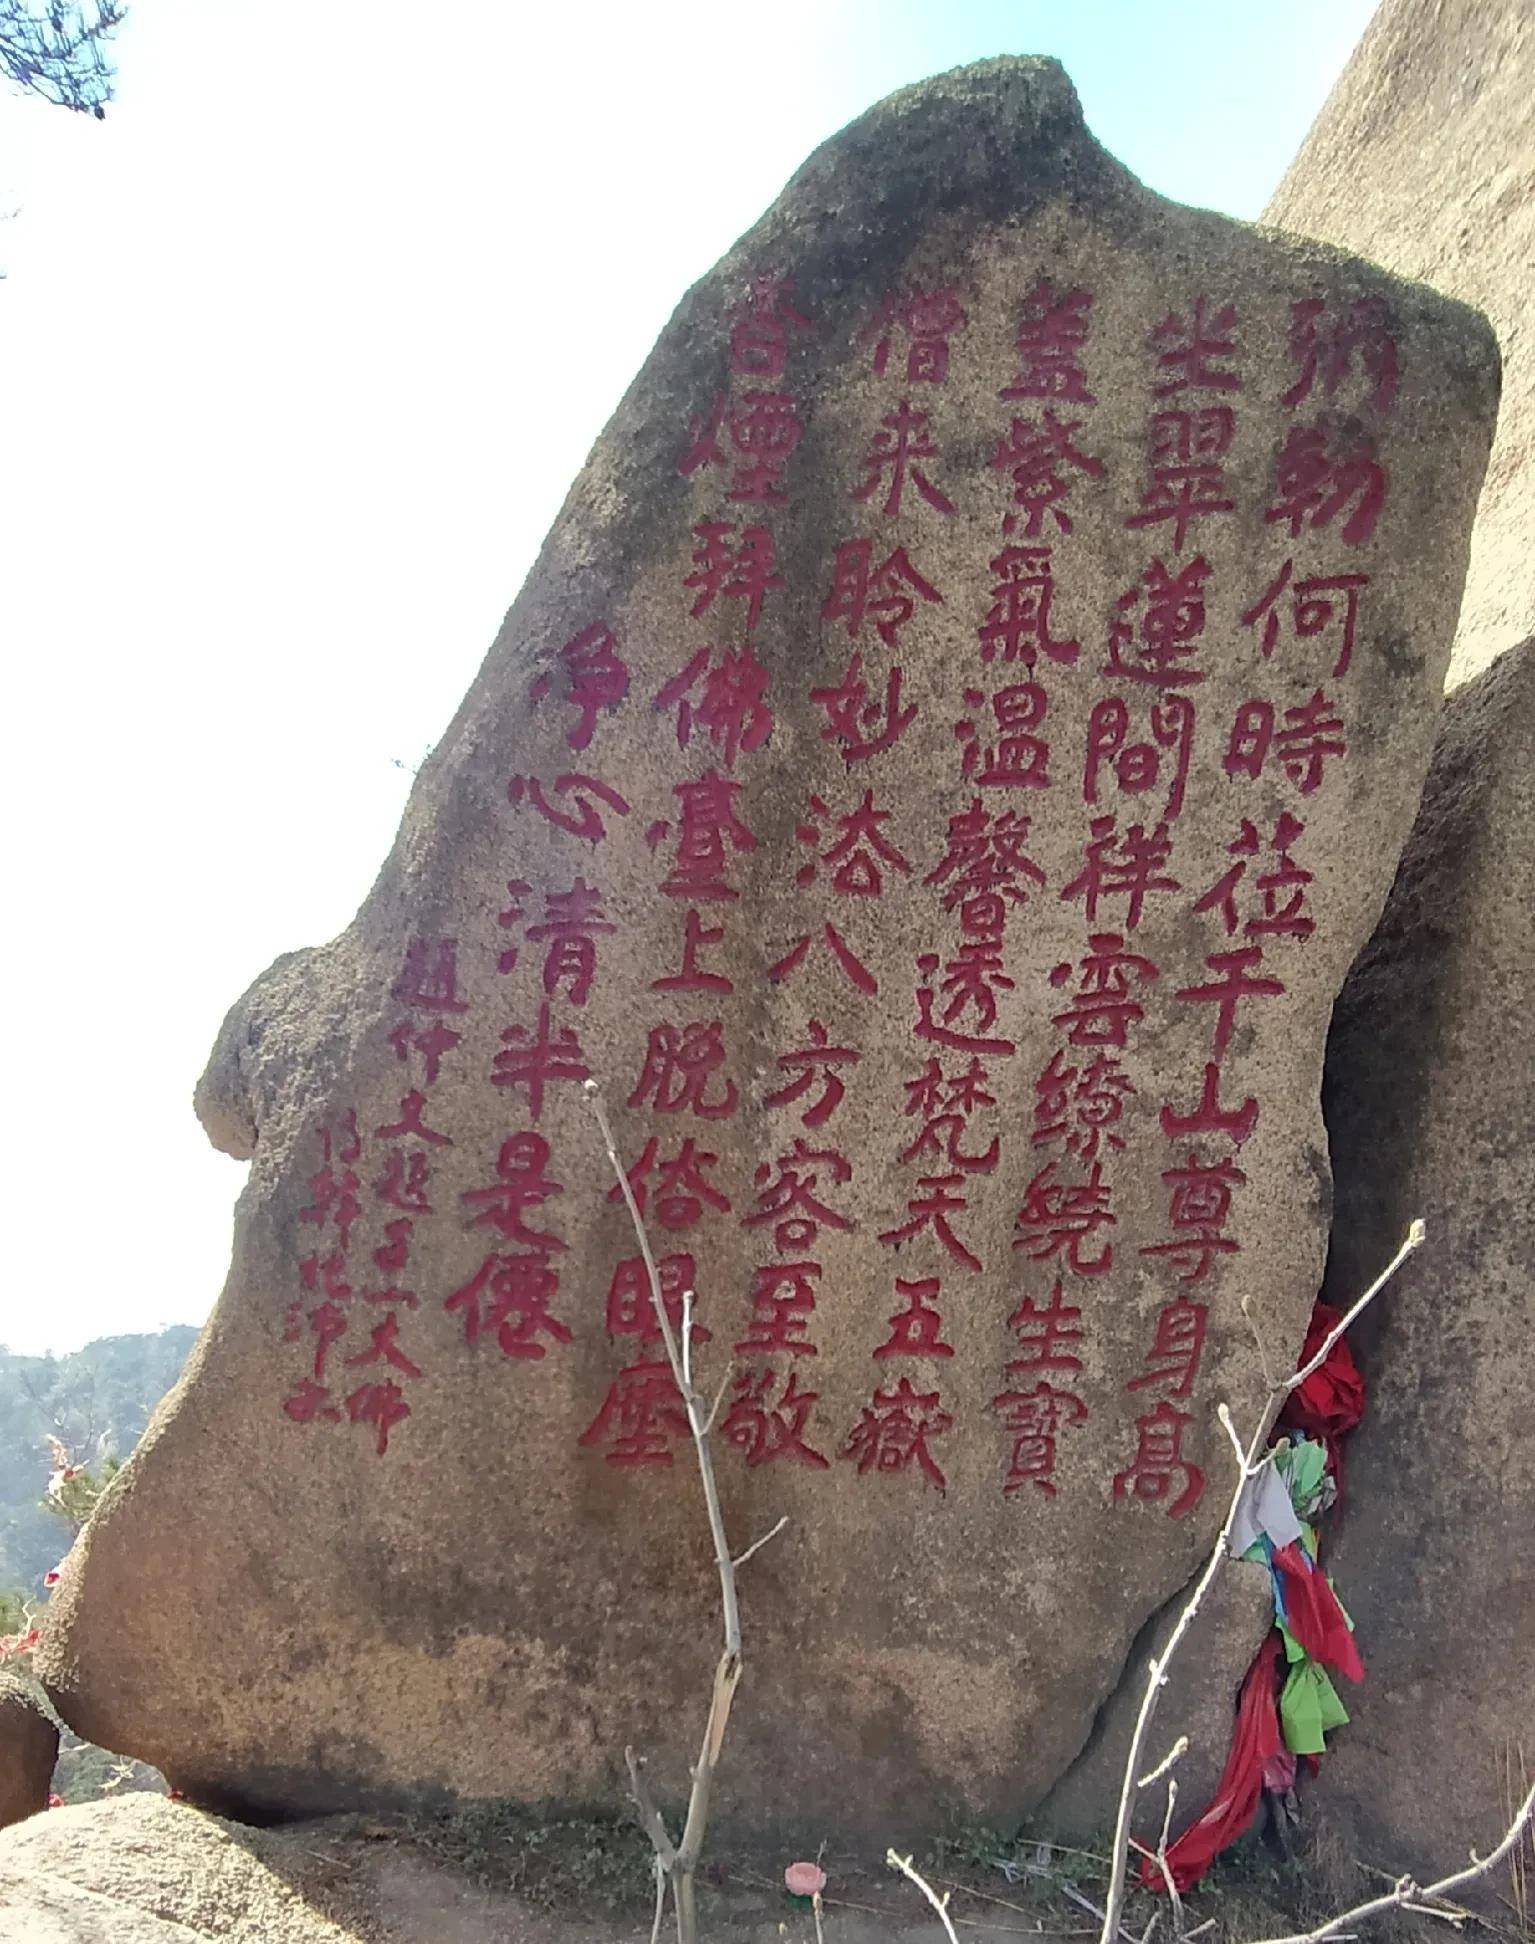 彌勒何時莅千山尊身高
坐翠蓮間祥雲繚繞生寶
蓋紫氣溫馨透梵天五嶽
僧来聆妙法八方客至敬
香煙拜佛臺上脫俗眼塵
淨心清半是僊
趙仲文題千山大佛